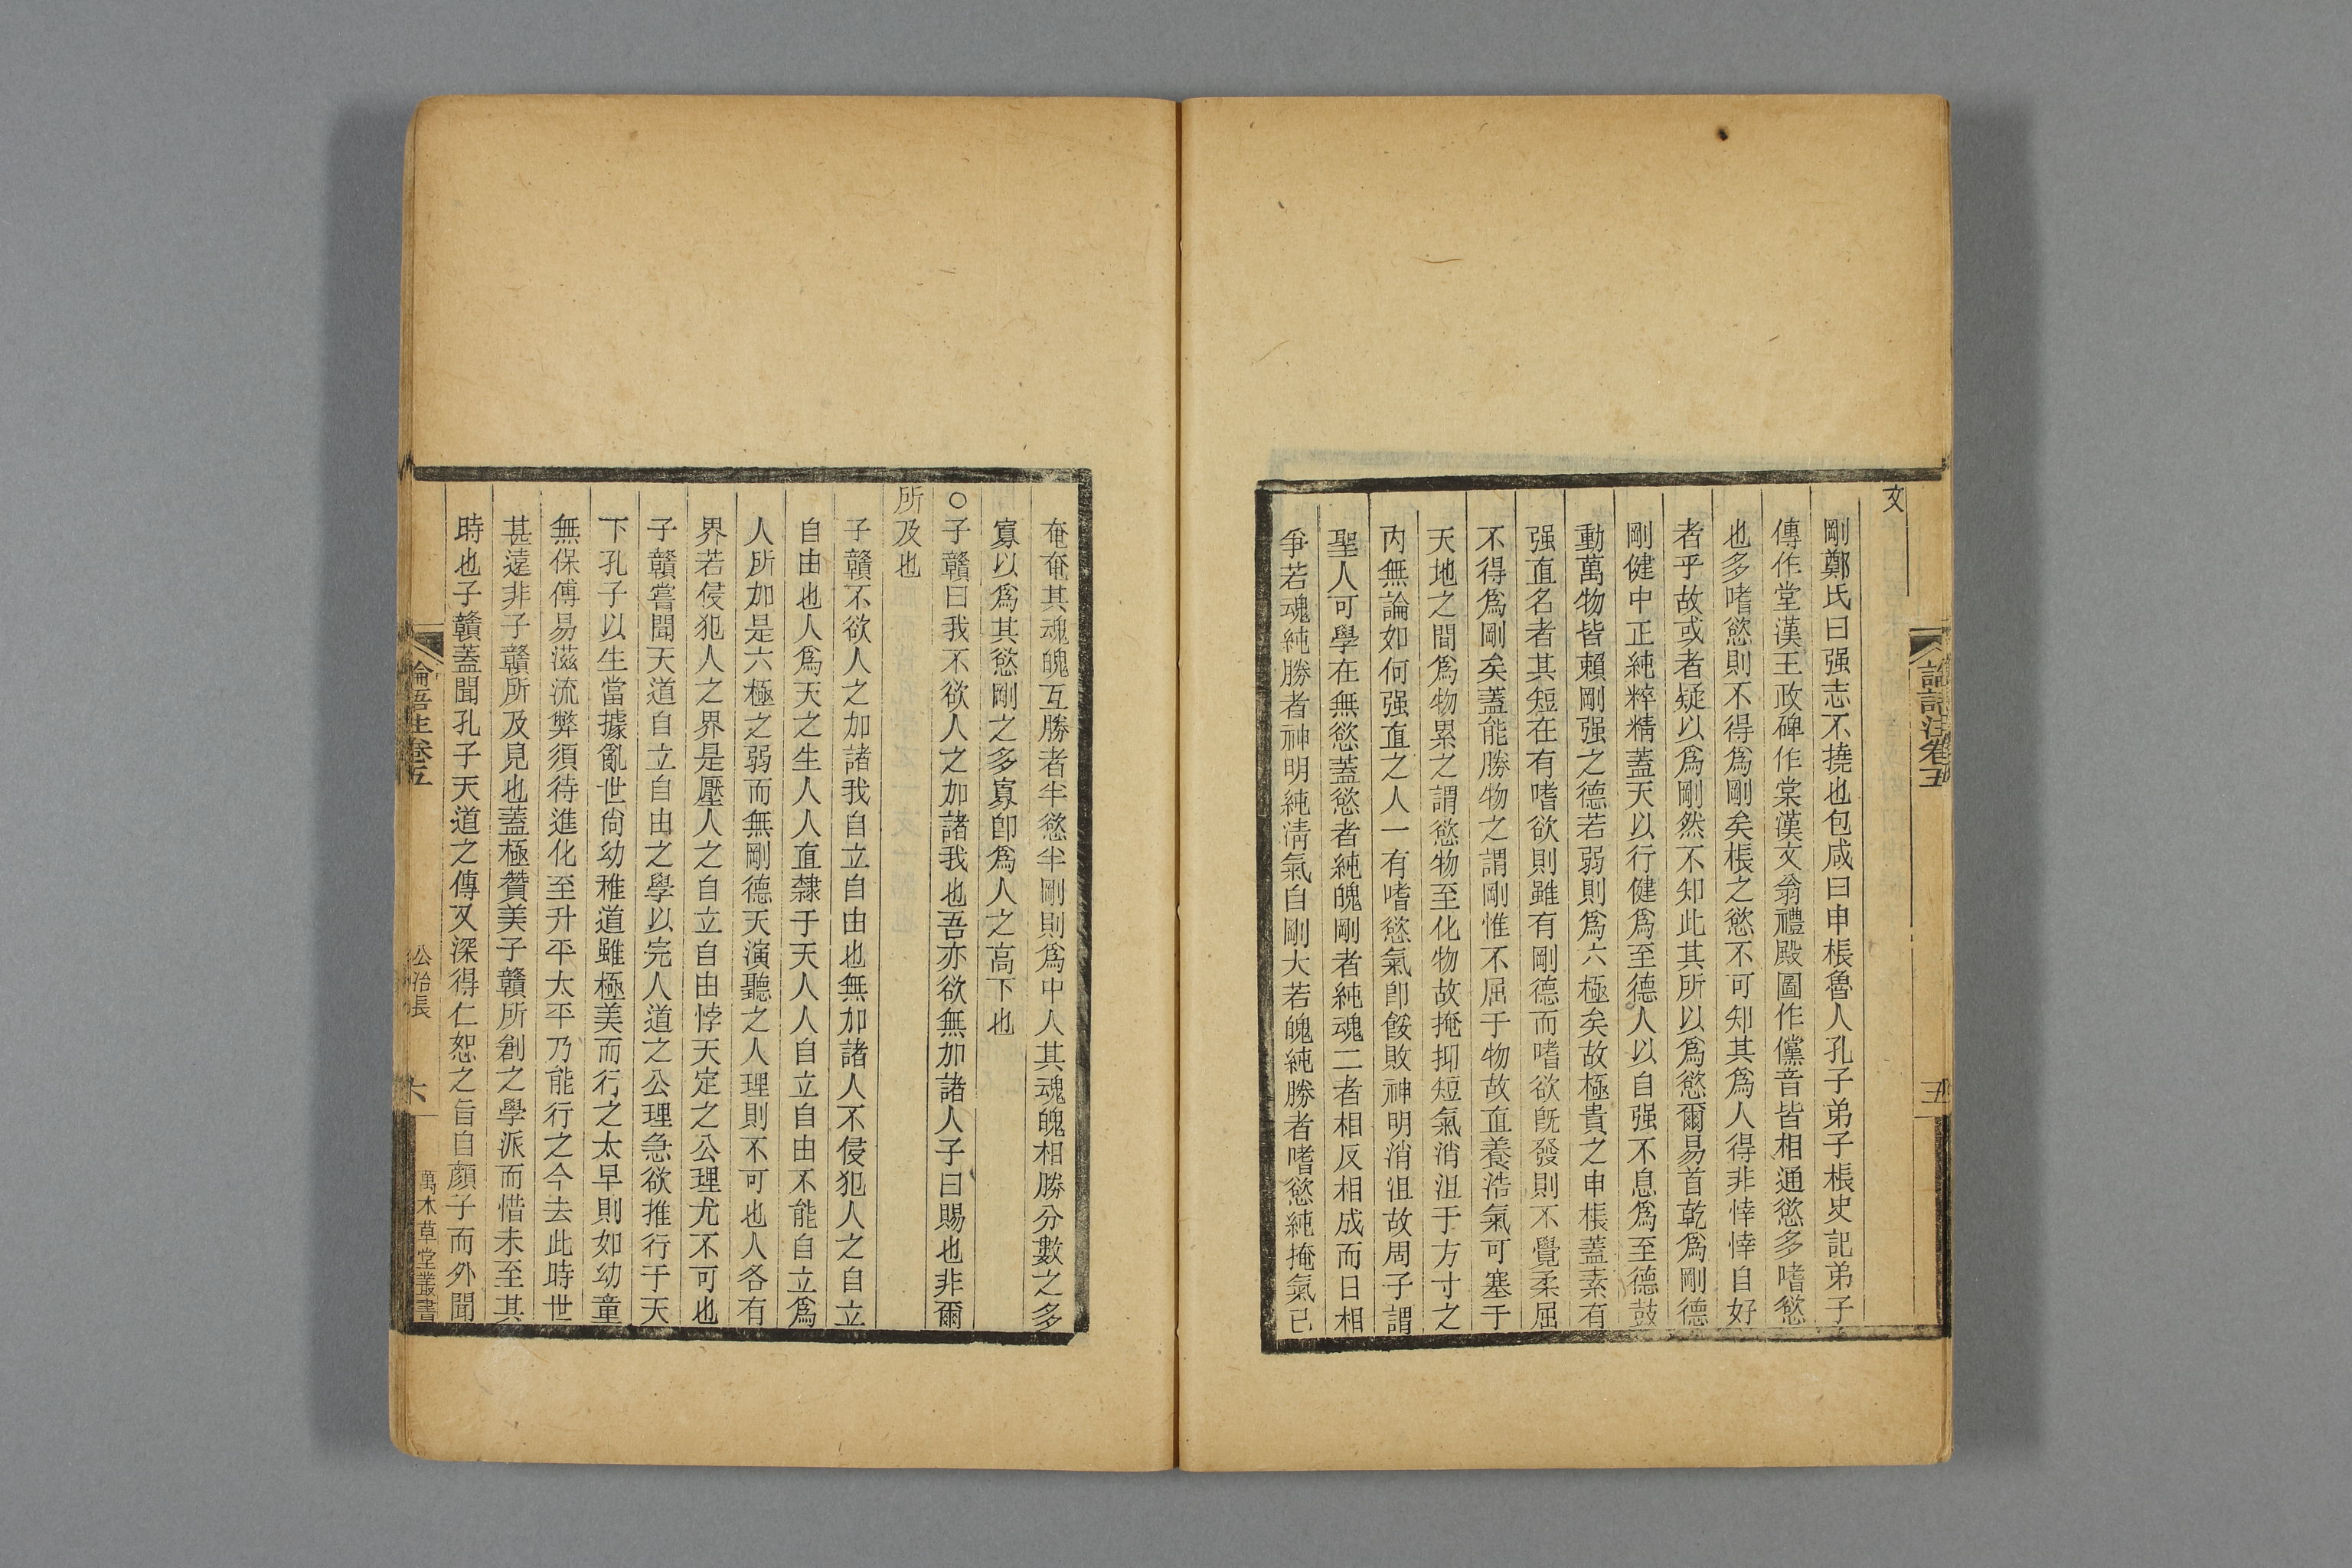 論語注卷五
五
文
剛鄭氏曰强志不撓也包咸曰申棖魯人孔子弟子棖史記弟子
傳作堂漢王政碑作棠漢文翁禮殿圖作儻音皆相通慾多嗜慾
也多嗜慾則不得爲剛矣棖之慾不可知其爲人得非悻悻自好
者乎故或者疑以爲剛然不知此其所以爲慾爾易首乾爲剛德
剛健中正純粹精蓋天以行健爲至德人以自强不息爲至德鼓
動萬物皆賴剛强之德若弱則爲六極矣故極貴之申棖蓋素有
强直名者其短在有嗜欲則雖有剛德而嗜欲旣發則不覺柔屈
不得爲剛矣蓋能勝物之謂剛惟不屈于物故直養浩氣可塞于
天地之間爲物累之謂慾物至化物故掩抑短氣消沮于方寸之
內無論如何强直之人一有嗜慾氣卽餒敗神明消沮故周子謂
聖人可學在無慾蓋慾者純魄剛者純魂二者相反相成而日相
爭若魂純勝者神明純淸氣自剛大若魄純勝者嗜慾純掩氣已
奄奄其魂魄互勝者半慾半剛則爲中人其魂魄相勝分數之多
寡以爲其慾剛之多寡卽爲人之高下也
○子贛曰我不欲人之加諸我也吾亦欲無加諸人子曰賜也非爾
所及也
子贛不欲人之加諸我自立自由也無加諸人不侵犯人之自立
自由也人爲天之生人人直隸于天人人自立自由不能自立爲
人所加是六極之弱而無剛德天演聽之人理則不可也人各有
界若侵犯人之界是壓人之自立自由悖天定之公理尤不可也
子贛嘗聞天道自立自由之學以完人道之公理急欲推行于天
下孔子以生當據亂世尙幼稚道雖極美而行之太早則如幼童
無保傅易滋流弊須待進化至升平太平乃能行之今去此時世
甚遠非子贛所及見也蓋極贊美子贛所創之學派而惜未至其
時也子贛蓋聞孔子天道之傳又深得仁恕之旨自顏子而外聞
論語注卷五
公冶長
六
萬木草堂叢書